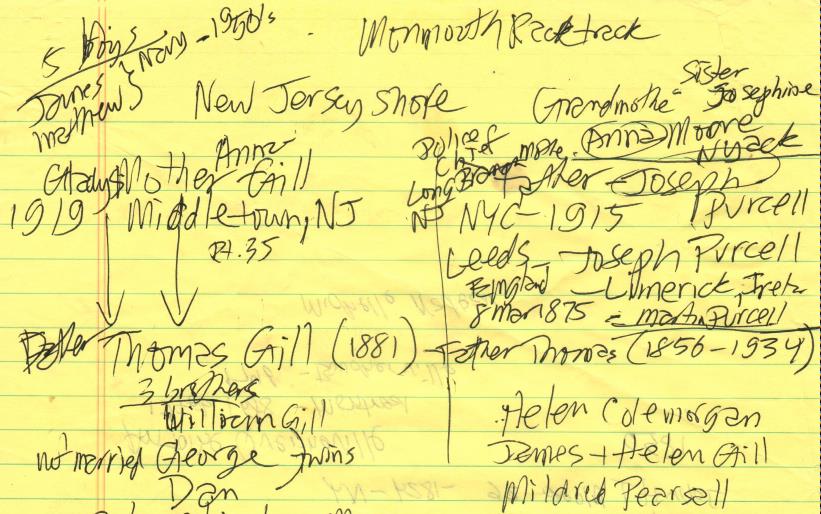 5 Boys
Navy - 1950's
Monmouth Racetrack
James
Matthew
New Jersey Shore
Grandmother
Sister
Josephine
Anna Moore
Nyack
Anna
Gladys Mother Gill
1919 Middletown, NJ
Rt. 35
Police
Chief
Long Branch
NJ
Father - Joseph
Purcell
NYC - 1915
Leeds - Joseph Purcell
England - Limerick,
8 Mar 1875 - Martin Purcell
Father Thomas Gill (1881) - Father Thomas (1856-1934)
3 brothers
William Gill
not married George twins
Dan
Helen Colemorgan
James + Helen Gill
Mildred Pearsall